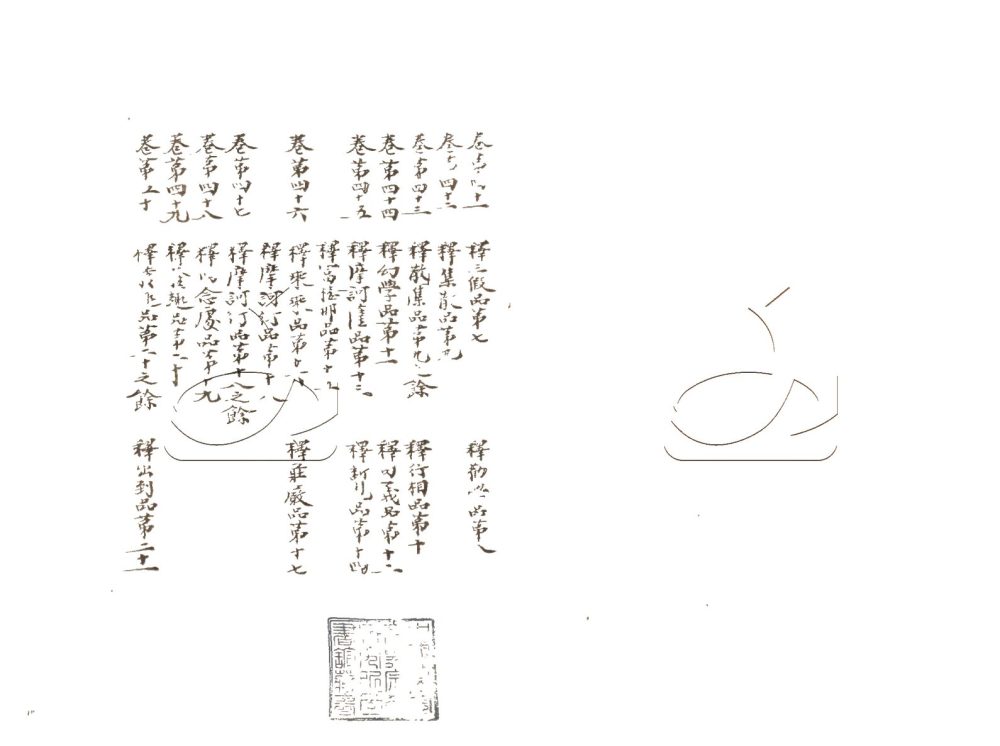 卷第四十一 釋三假品第七 釋勸學品第八
卷第四十二 釋集散品第九
卷第四十三 釋散集品第九之餘 釋行相品第十
卷第四十四 釋幻學品第十一 釋句義品第十二
卷第四十五 釋摩訶薩品第十三 釋斷見品第十四
釋富樓那品第十五
卷第四十六 釋乘乘品第十六 釋莊嚴品第十七
釋摩訶衍品第十八
卷第四十七 釋摩訶衍品第十八之餘
卷第四十八 釋四念處品第十九
卷第四十九 釋發趣品第二十
卷第五十 釋發趣品第二十之餘 釋出到品第二十一